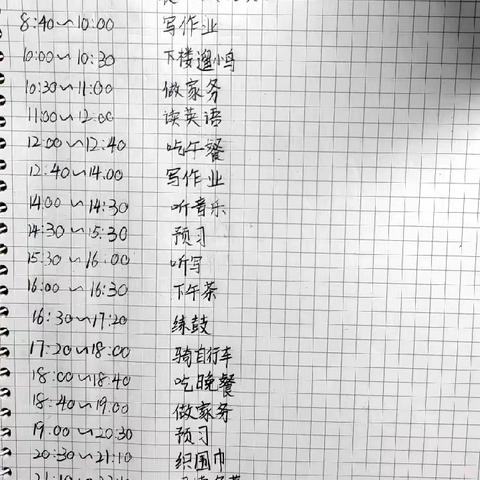 8:40~10:00 写作业
10:00~10:30 下楼遛小鸟
10:30~11:00 做家务
11:00~12:00 读英语
12:00~12:40 吃午餐
12:40~14:00 写作业
14:00~14:30 听音乐
14:30~15:30 预习
15:30~16:00 听写
16:00~16:30 下午茶
16:30~17:20 练鼓
17:20~18:00 骑自行车
18:00~18:40 吃晚餐
18:40~19:00 做家务
19:00~20:30 预习
20:30~21:10 织围巾